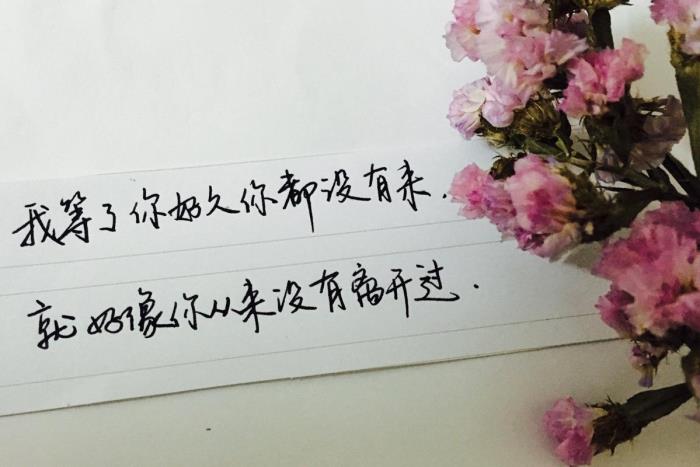 我等了你好久你都没有来.
就好像你从来没有离开过.